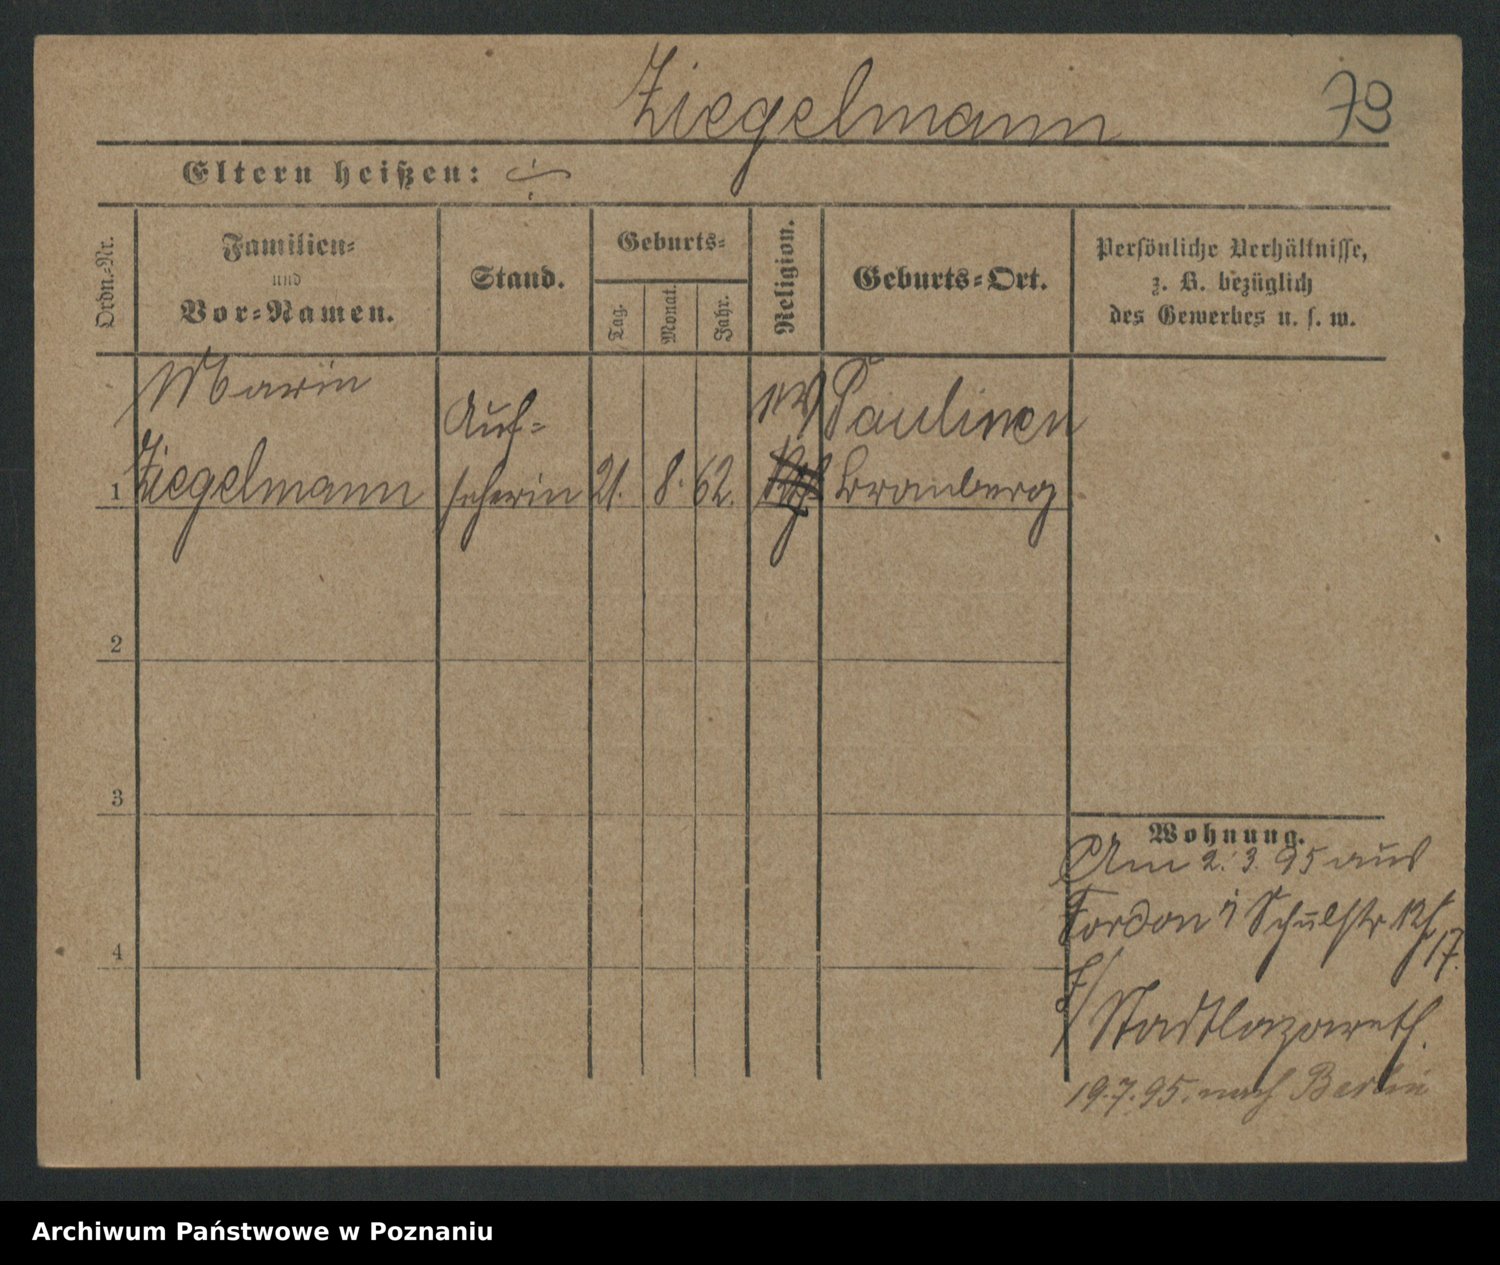 Ziegelmann 79
Eltern heißen: ÷
Ordn.=Nr.
Familien=
und
Vor=Namen.
Stand.
Geburts=
Tag.
Monat.
Jahr.
Religion.
Geburts=Ort.
Persönliche Verhältnisse,
z. B. bezüglich
des Gewerbes u. s. w.
Marie
Ziegelmann
Auf=
seherin
21. 8. 62.
ev
Paulinen
Branberg
1
2
3
4
Wohnung.
Am 2. 3. 95 aus
Fordon Schulstr 17.
Stadtlazareth.
19.7.95. nach Berlin
Archiwum Państwowe w Poznaniu